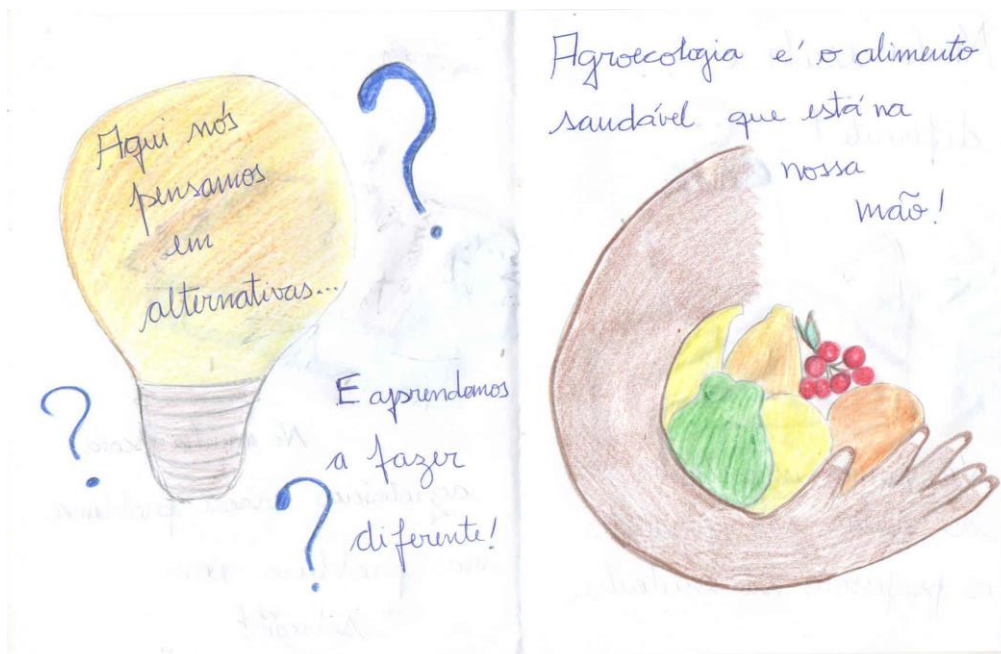 Aqui nós
pensamos
em
alternativas...
E aprendemos
a fazer
diferente!
Agroecologia é o alimento
saudável que está na
nossa
mão!